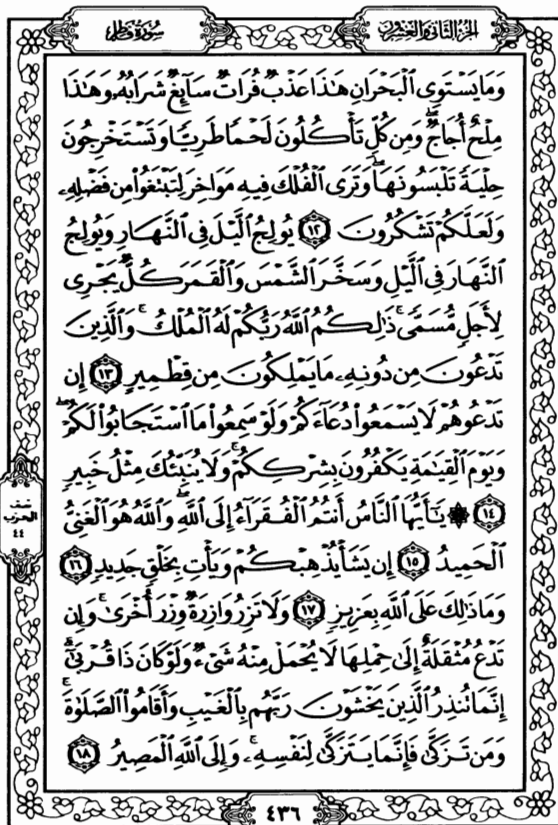 الجزء الثاني والعشرون
سورة فاطر
وَمَا يَسْتَوِي الْبَحْرَانِ هَٰذَا عَذْبٌ فُرَاتٌ سَآئِغٌ شَرَابُهُۥ وَهَٰذَا
مِلْحٌ أُجَاجٌ ۖ وَمِن كُلٍّ تَأْكُلُونَ لَحْمًا طَرِيًّا وَتَسْتَخْرِجُونَ
حِلْيَةً تَلْبَسُونَهَا ۖ وَتَرَى الْفُلْكَ فِيهِ مَوَاخِرَ لِتَبْتَغُوا۟ مِن فَضْلِهِۦ
وَلَعَلَّكُمْ تَشْكُرُونَ ١٢ يُولِجُ الَّيْلَ فِي النَّهَارِ وَيُولِجُ
النَّهَارَ فِي الَّيْلِ وَسَخَّرَ الشَّمْسَ وَالْقَمَرَ كُلٌّ يَجْرِي
لِأَجَلٍ مُّسَمًّى ۚ ذَٰلِكُمُ اللَّهُ رَبُّكُمْ لَهُ الْمُلْكُ ۚ وَالَّذِينَ
تَدْعُونَ مِن دُونِهِۦ مَا يَمْلِكُونَ مِن قِطْمِيرٍ ١٣ إِن
تَدْعُوهُمْ لَا يَسْمَعُوا۟ دُعَآءَكُمْ وَلَوْ سَمِعُوا۟ مَا اسْتَجَابُوا۟ لَكُمْ ۖ
وَيَوْمَ الْقِيَٰمَةِ يَكْفُرُونَ بِشِرْكِكُمْ ۚ وَلَا يُنَبِّئُكَ مِثْلُ خَبِيرٍ
١٤ ۞ يَٰٓأَيُّهَا النَّاسُ أَنتُمُ الْفُقَرَآءُ إِلَى اللَّهِ ۖ وَاللَّهُ هُوَ الْغَنِيُّ
الْحَمِيدُ ١٥ إِن يَشَأْ يُذْهِبْكُمْ وَيَأْتِ بِخَلْقٍ جَدِيدٍ ١٦
وَمَا ذَٰلِكَ عَلَى اللَّهِ بِعَزِيزٍ ١٧ وَلَا تَزِرُ وَازِرَةٌ وِزْرَ أُخْرَىٰ ۚ وَإِن
تَدْعُ مُثْقَلَةٌ إِلَىٰ حِمْلِهَا لَا يُحْمَلْ مِنْهُ شَيْءٌ وَلَوْ كَانَ ذَا قُرْبَىٰٓ ۗ
إِنَّمَا تُنذِرُ الَّذِينَ يَخْشَوْنَ رَبَّهُم بِالْغَيْبِ وَأَقَامُوا۟ الصَّلَوٰةَ ۚ
وَمَن تَزَكَّىٰ فَإِنَّمَا يَتَزَكَّىٰ لِنَفْسِهِۦ ۚ وَإِلَى اللَّهِ الْمَصِيرُ ١٨
نصف
الحزب
٤٤
٤٣٦